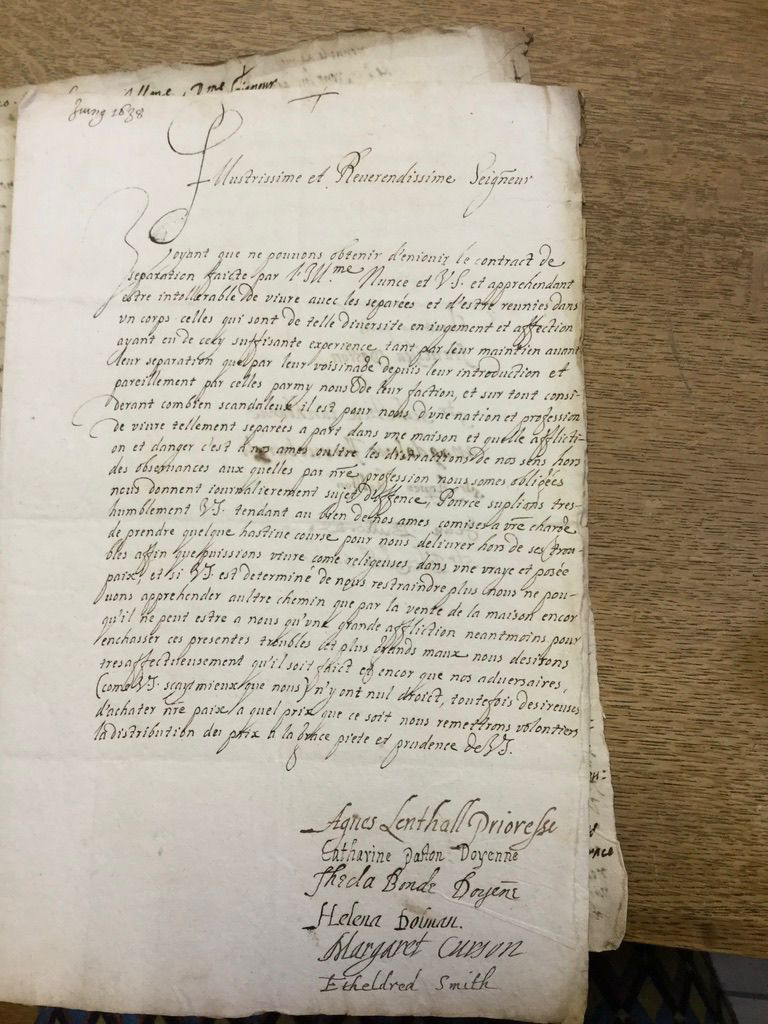 Juing 1638
Illustrissime et Reverendissime Seigneur
Voyant que ne pouvons obtenir d'enioui le contract de
separation faicte par l'Ill.me Nunce et V.S. et apprehendant
estre intollerable de viure avec les separées et d'estre reunies dans
vn corps celles qui sont de telle diuersite en iugement et affection
ayant eu de cecy suffisante experience, tant par leur maintien auant
leur separation que par leur voisinade depuis leur introduction et
pareillement par celles parmy nous de leur faction, et sur tout consi-
derant combien scandaleux il est pour nous d'vne nation et profession
de viure tellement separées a part dans vne maison et quelle afflicti-
on et danger c'est à nos ames oultre les distractions de nos sens hors
des observances aux quelles par nre profession nous somes obligées
nous donnent iournalierement sujet d'offence; Pource suplions tres-
humblement V.S. tendant au bien de nos ames comises a vre charge
de prendre quelque hastiue course pour nous deliurer hors de ses trou-
bles affin que puissions viure come religeuses dans vne vraye et posée
paix, et si V.S. est determiné de nous restraindre plus nous ne pou-
uons apprehender aultre chemin que par la vente de la maison encor
qu'il ne peut estre a nous qu'vne grande affliction neantmoins pour
enchasser ces presentes troubles et plus grands maux nous desirons
tresaffectueusement qu'il soit faict et encor que nos adversaires,
(come V.S. scayt mieux que nous) n'y ont nul droict, toutefois desireuses
d'achater nre paix a quel prix que ce soit nous remettrons volontiers
la distribution du prix a la grace piete et prudence de V.S.
Agnes Lenthall Prioresse
Catharine Paston Doyenne
Thecla Bonde Doyene
Helena Dolman.
Margaret Curson
Etheldred Smith